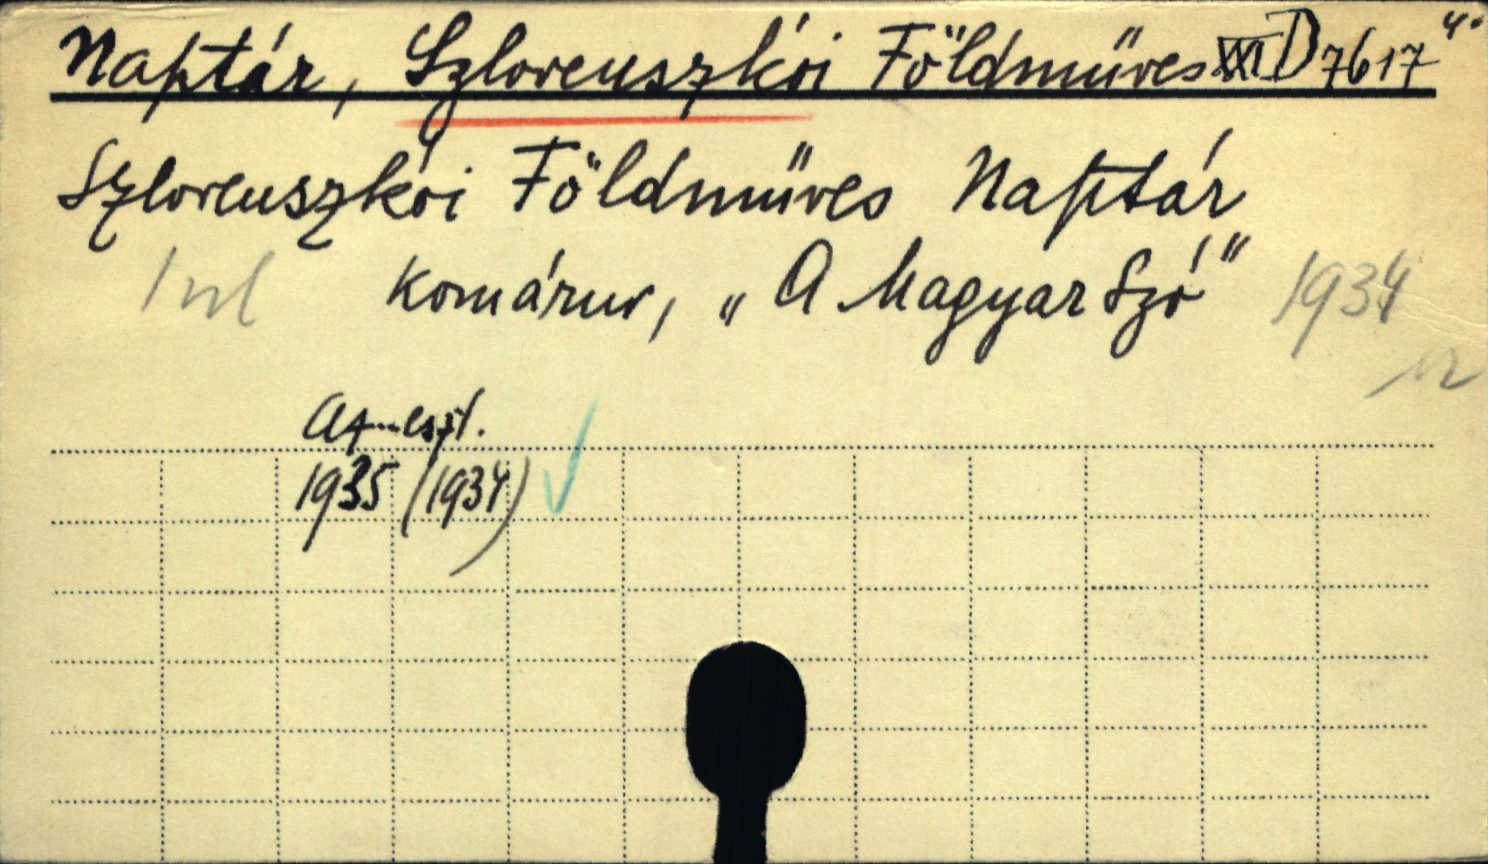 Naptár, Szlovenszkói Földműves XXI D 7617 4°
Szlovenszkói Földműves Naptár
Komárno, „A Magyar Szó" 1934
1935 (1934)